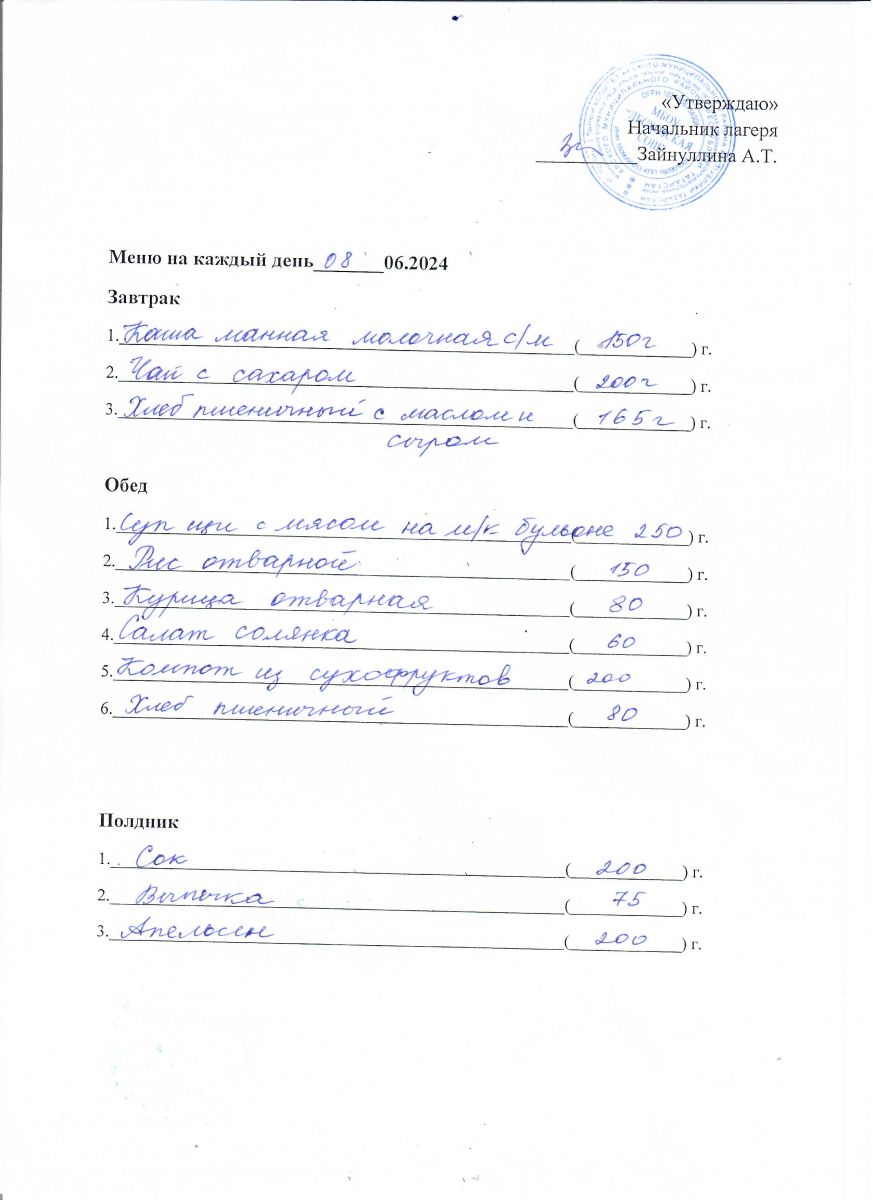 «Утверждаю»
Начальник лагеря
Зайнуллина А.Т.
Меню на каждый день 08 06.2024
Завтрак
1. Каша манная молочная с/м (150г) г.
2. Чай с сахаром (200г) г.
3. Хлеб пшеничный с маслом и (165г) г.
сыром
Обед
1. Суп щи с мясом на м/к бульоне 250) г.
2. Рис отварной (150) г.
3. Курица отварная (80) г.
4. Салат солянка (60) г.
5. Компот из сухофруктов (200) г.
6. Хлеб пшеничный (80) г.
Полдник
1. Сок (200) г.
2. Выпечка (75) г.
3. Апельсин (200) г.